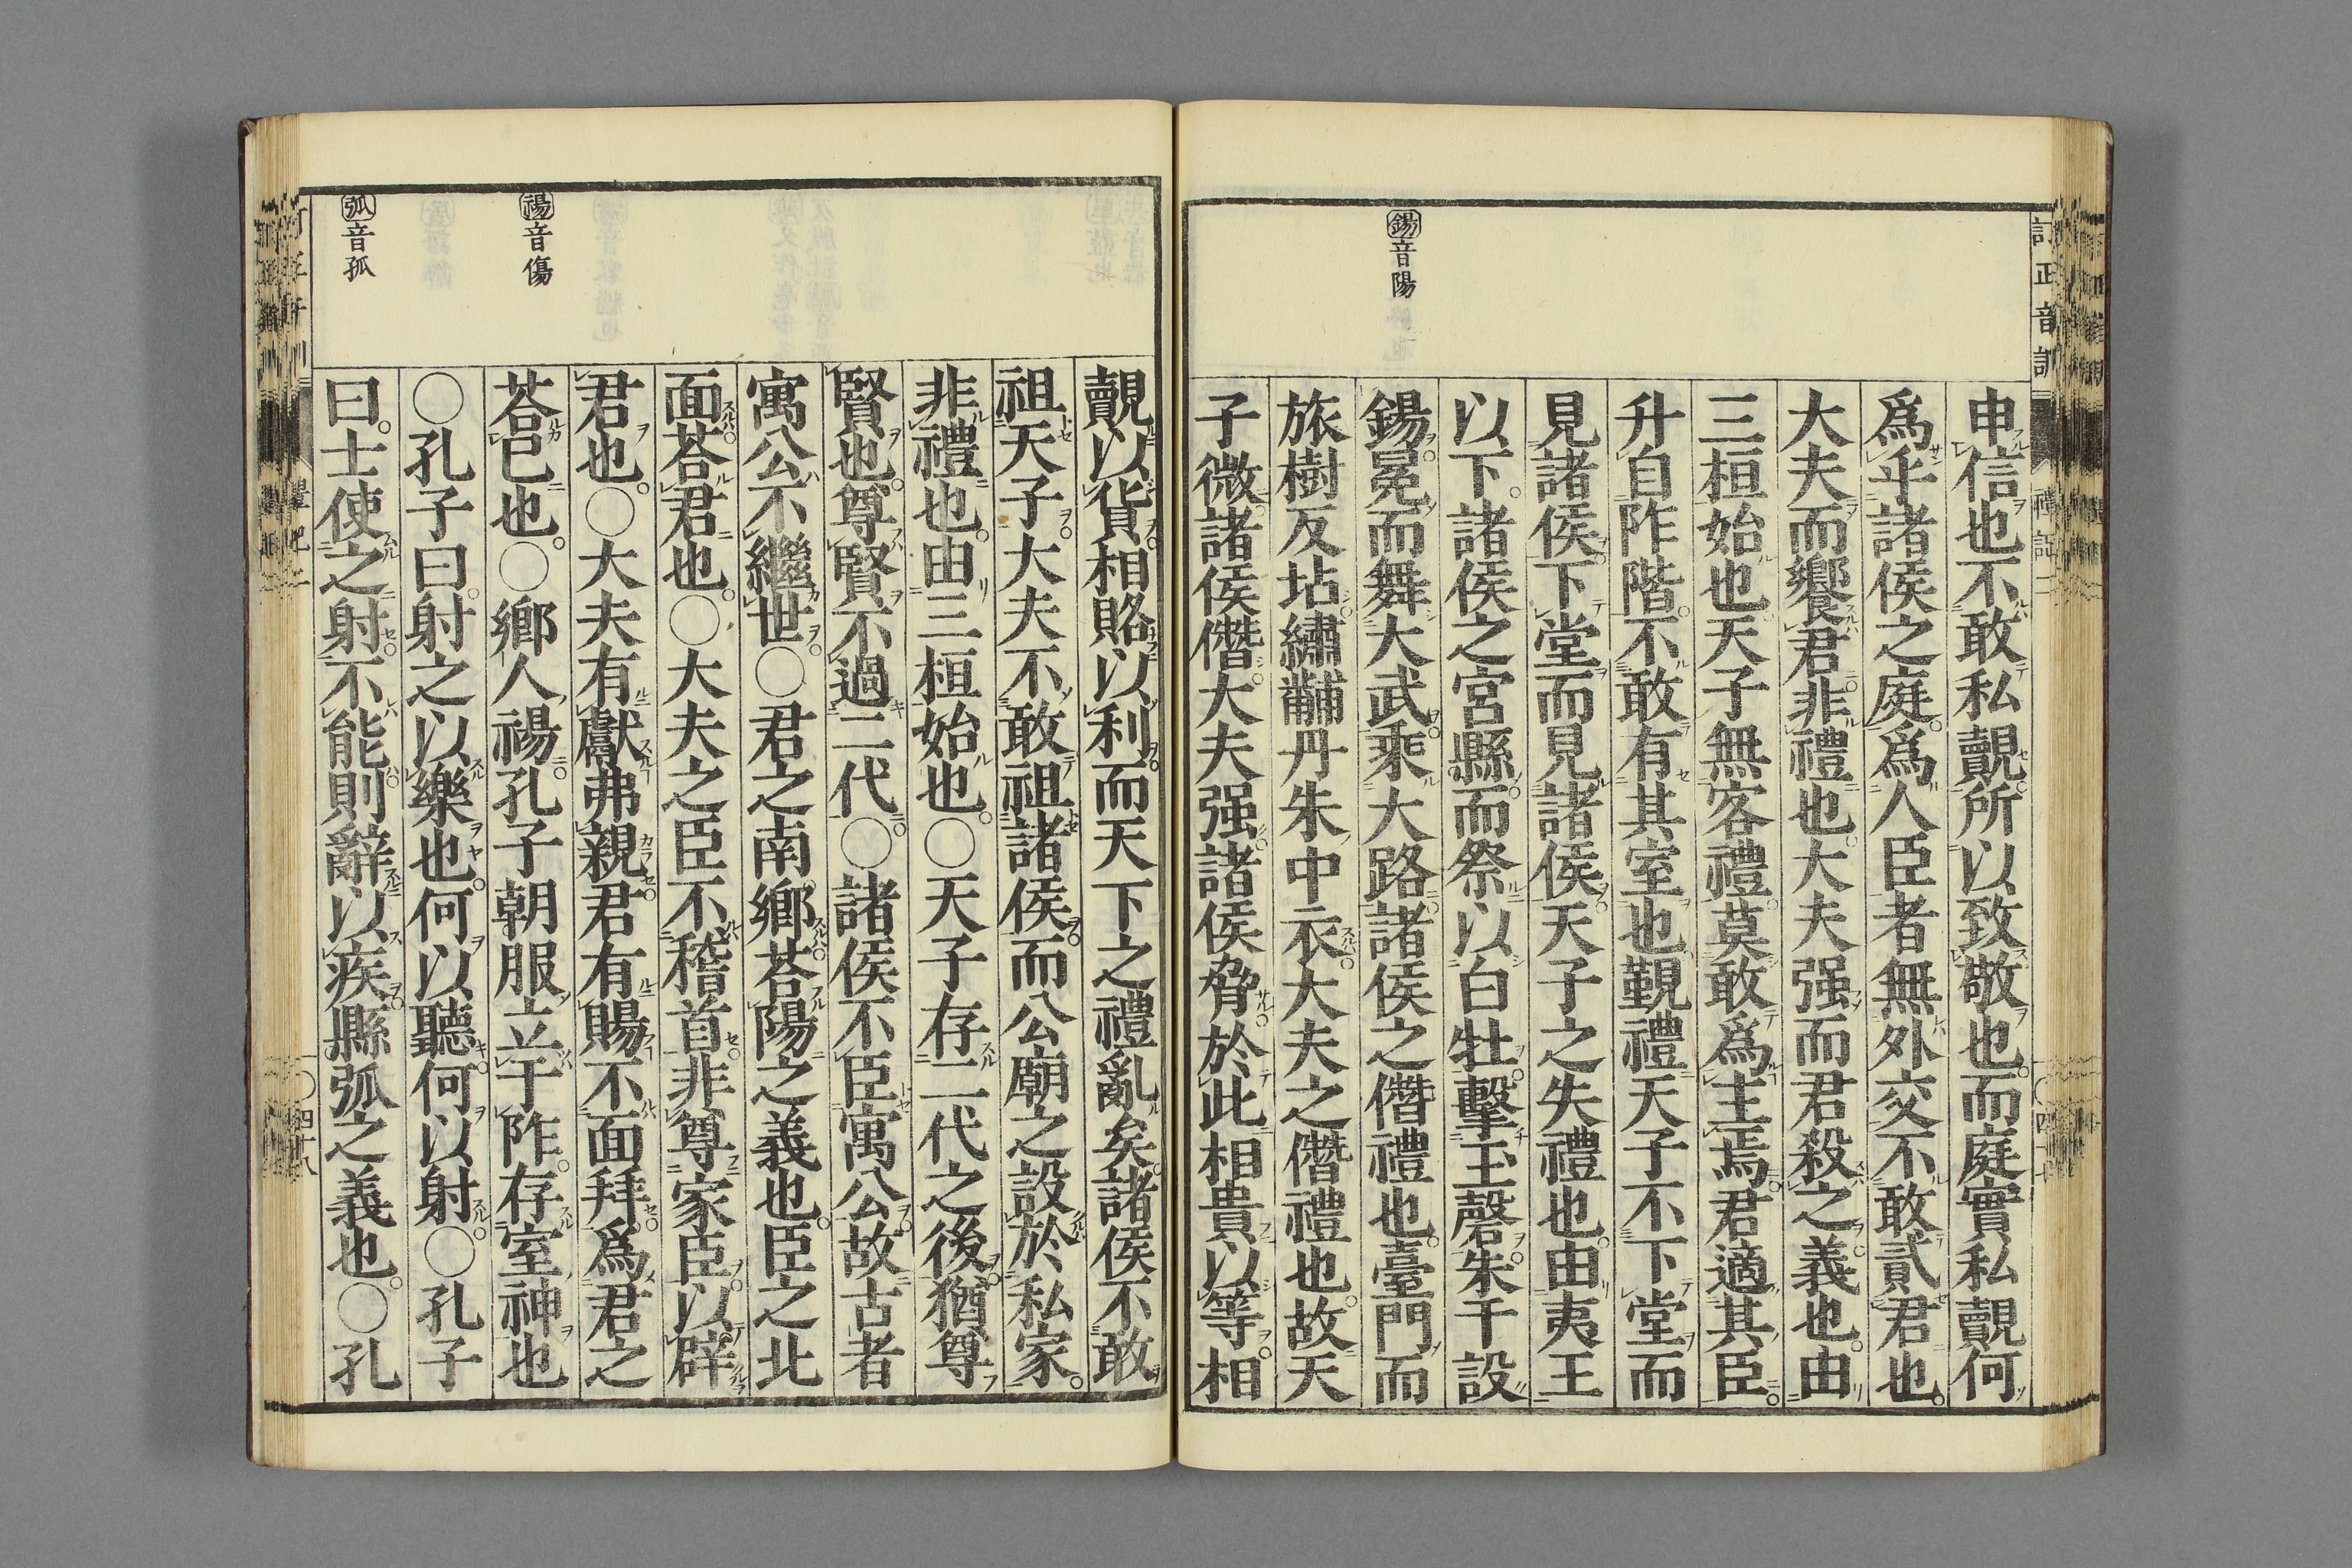 訂正音訓
禮記二
四十七
錫音陽
申信也不敢私覿所以致敬也而庭實私覿何
爲乎諸侯之庭爲人臣者無外交不敢貳君也
大夫而饗君非禮也大夫强而君殺之義也由
三桓始也天子無客禮莫敢爲主焉君適其臣
升自阼階不敢有其室也覲禮天子不下堂而
見諸侯下堂而見諸侯天子之失禮也由夷王
以下諸侯之宮縣而祭以白牡擊玉磬朱干設
錫冕而舞大武乘大路諸侯之僭禮也臺門而
旅樹反坫繡黼丹朱中衣大夫之僭禮也故天
子微諸侯僭大夫强諸侯脅於此相貴以等相
禓音傷
弧音孤
覿以貨相賂以利而天下之禮亂矣諸侯不敢
祖天子大夫不敢祖諸侯而公廟之設於私家
非禮也由三桓始也○天子存二代之後猶尊
賢也尊賢不過二代○諸侯不臣寓公故古者
寓公不繼世○君之南鄉荅陽之義也臣之北
面荅君也○大夫之臣不稽首非尊家臣以辟
君也○大夫有獻弗親君有賜不面拜爲君之
荅已也○鄉人禓孔子朝服立于阼存室神也
○孔子曰射之以樂也何以聽何以射○孔子
曰士使之射不能則辭以疾縣弧之義也○孔
四十八